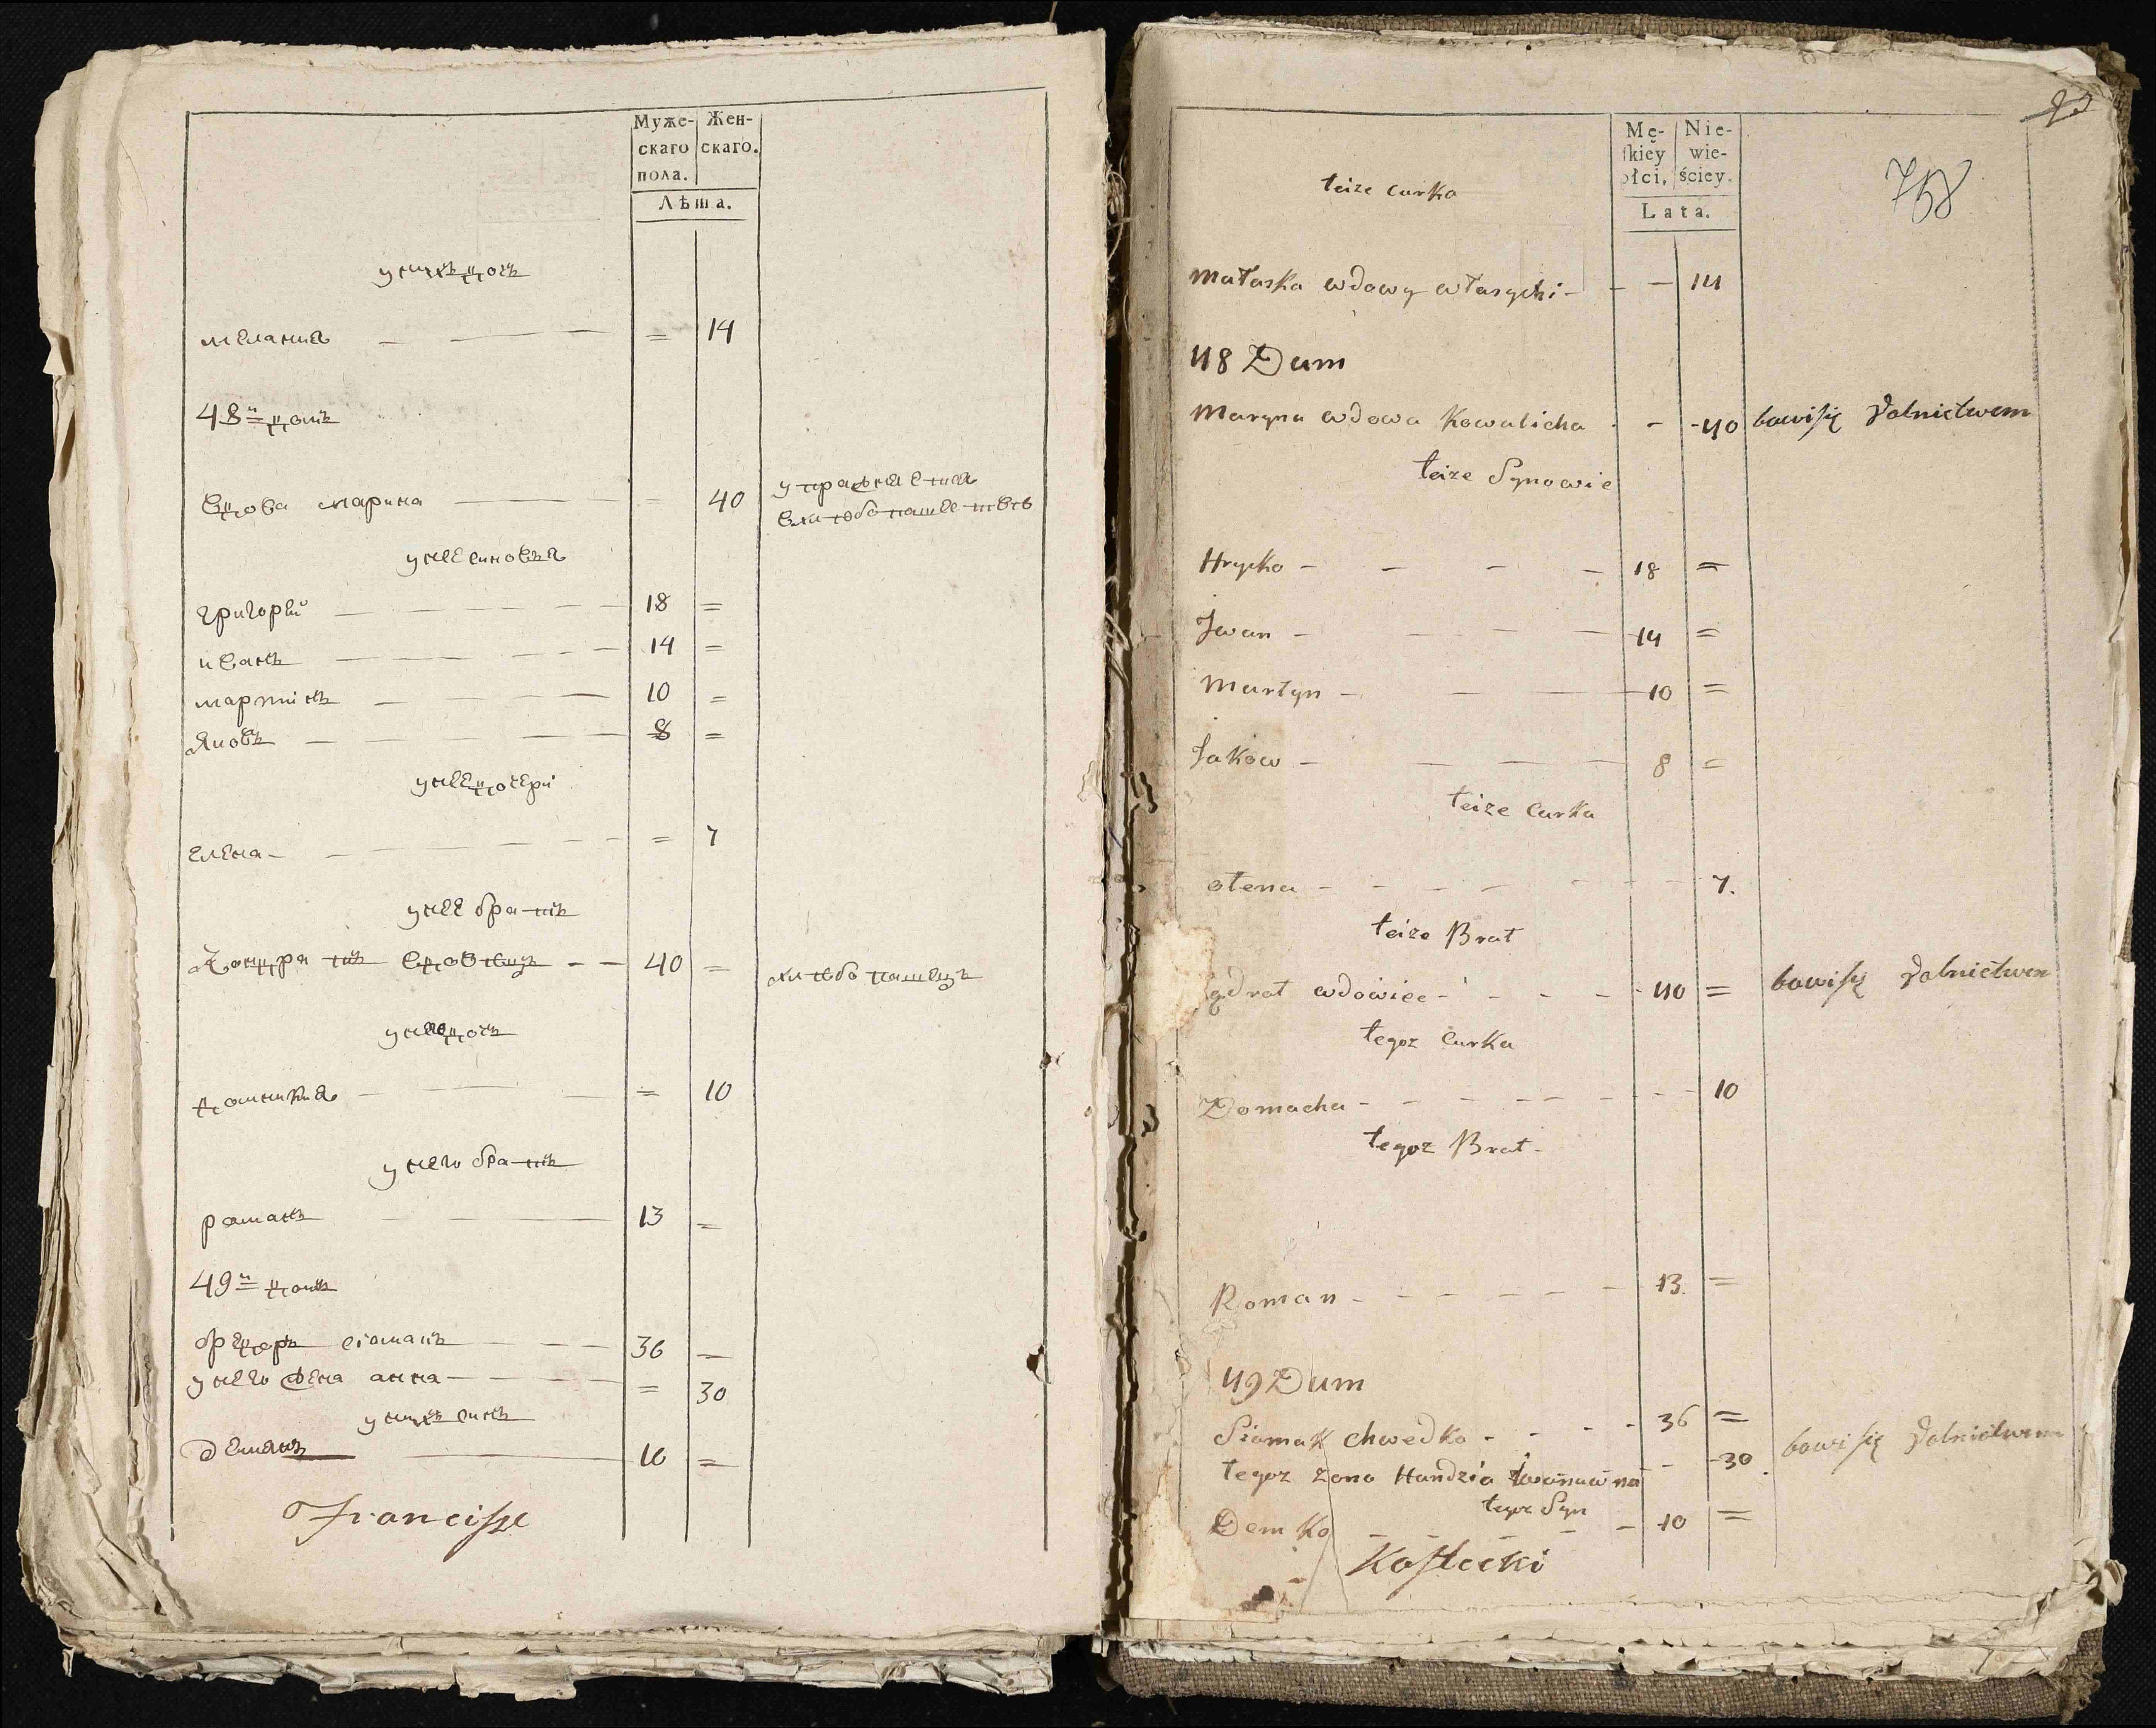 Муже-
скаго
пола.
Жен-
скаго.
Лѣта.
у нихъ дочь
мелания — — = 14
48й домъ
Вдова марина — — 40 упражнѣния
в хлѣбопашествѣ
у нее синовья
григорѣй — — — — 18 =
иванъ — — — — 14 =
мартинъ — — — 10 =
Яковъ — — — — 8 =
у нее дочери
елена — — — — = 7
у нее братъ
Кондратъ вдовецъ — — 40 = хлѣбопашецъ
у него дочь
домникия — — — = 10
у него братъ
романъ — — — 13 =
49й домъ
федоръ сіомакъ — — — 36 =
у него жена анна — — — = 30
у нихъ синъ
демянъ — 10 =
Francisze
23
758
Mę-
ſkiey
płci,
Nie-
wie-
ściey.
Lata.
teize curka
Małaska wdowy własychi - - - 14
48 Dum
Maryna wdowa Kowalicha - - 40 bawi się Rolnictwem
teize Synowie
Hrycko - - - - 18 =
Jwan - - - - 14 =
Martyn - - - 10 =
Jakow - - - - 8 =
teize Curka
ołena - - - - - - 7.
teize Brat
ądrat wdowiec - - - - 40 = bawi się Rolnictwem
tegoz Curka
Domacha - - - - - - - 10
tegoz Brat -
Roman - - - - - - 13. =
49 Dum
Siomak Chwedko - - - - 36 =
tegoz zona Handzia Iwanowna - 30 bawi się Rolnictwem
tegoz Syn
Demko - - - - - 10 =
Koſtecki